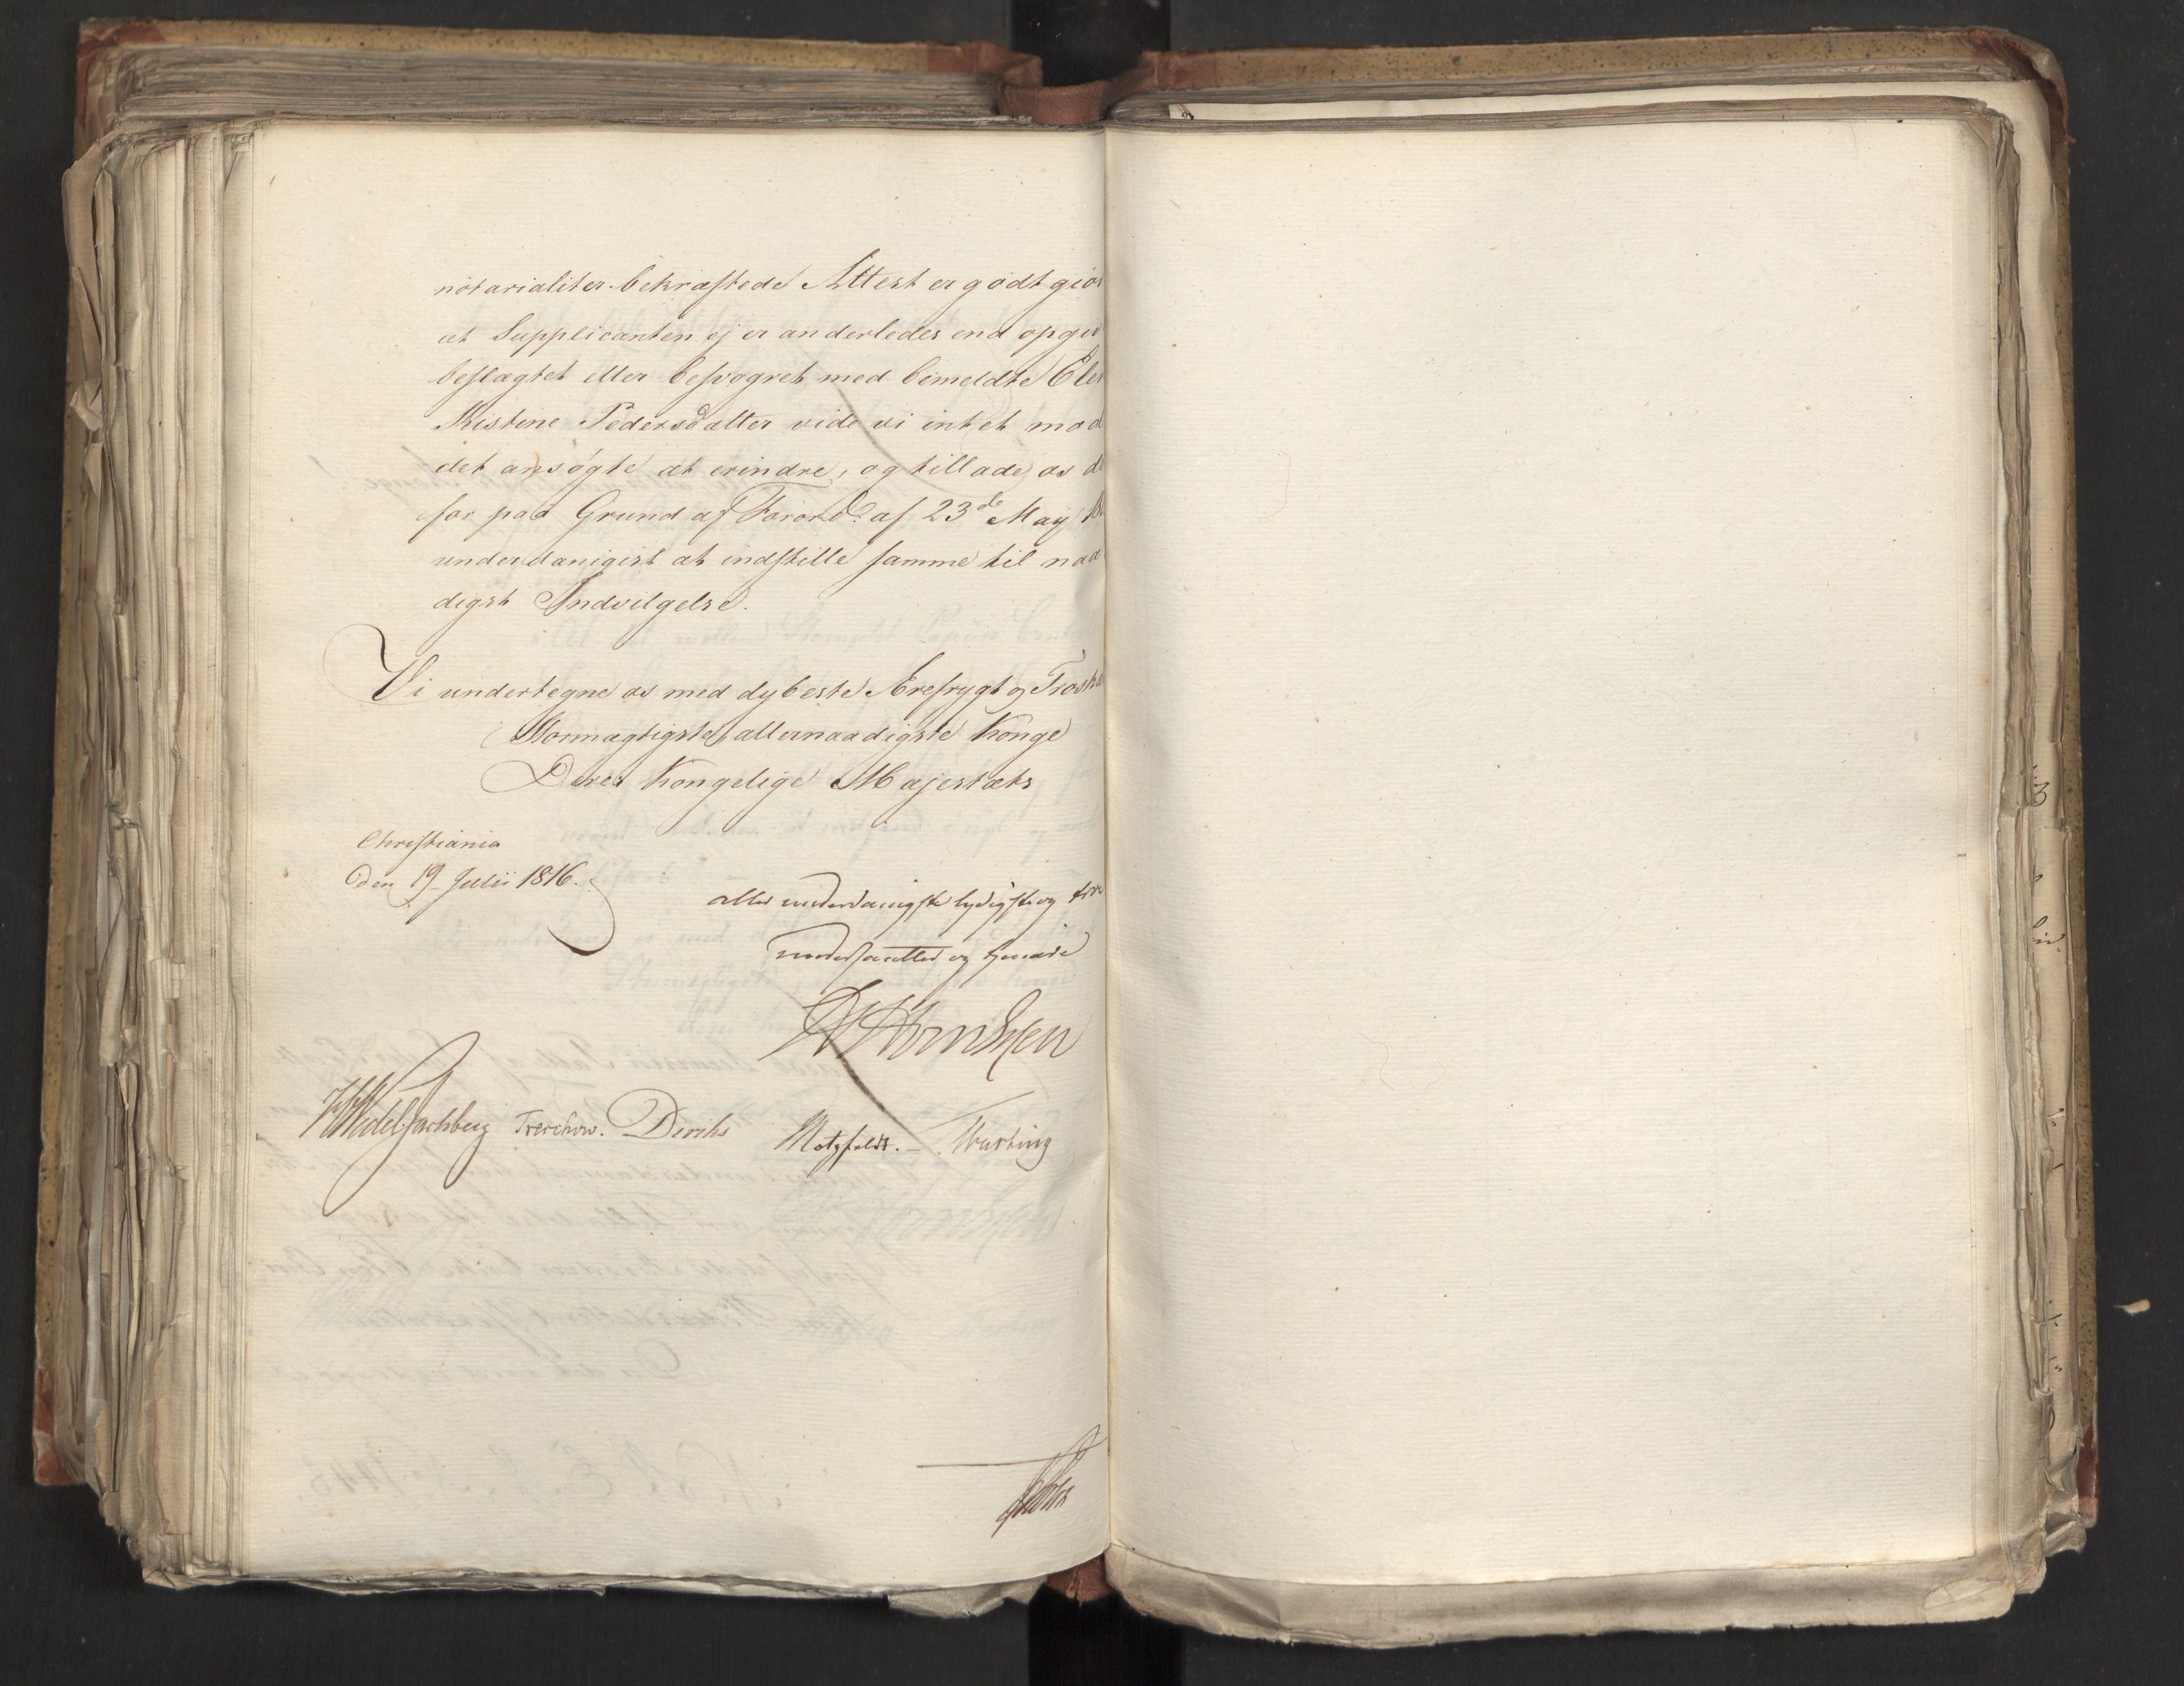 notarialiter bekræftede Attest er godtgiør
at Supplicanten ej er anderledes end opgiv
beslægtet eller besvogret med bemeldte Elen
Kistine Pedersdatter vide vi intet mod
det ansøgte at erindre, og tillade os de
for paa Grund af Forord. af 23de Maij 18
underdanigst at indstille samme til naa
digst Indvilgelse.
Vi undertegne os med dybeste Ærefrygt og Troska
Stormægtigste, allernaadigste Konge
Deres Kongelige Majestæts
Christiania
den 19 Julii 1816.
allerunderdanigste lydigste og troe
undersaatter og tjenere
Wedel Jarlsberg Treschow. Diriks Motzfeldt. –